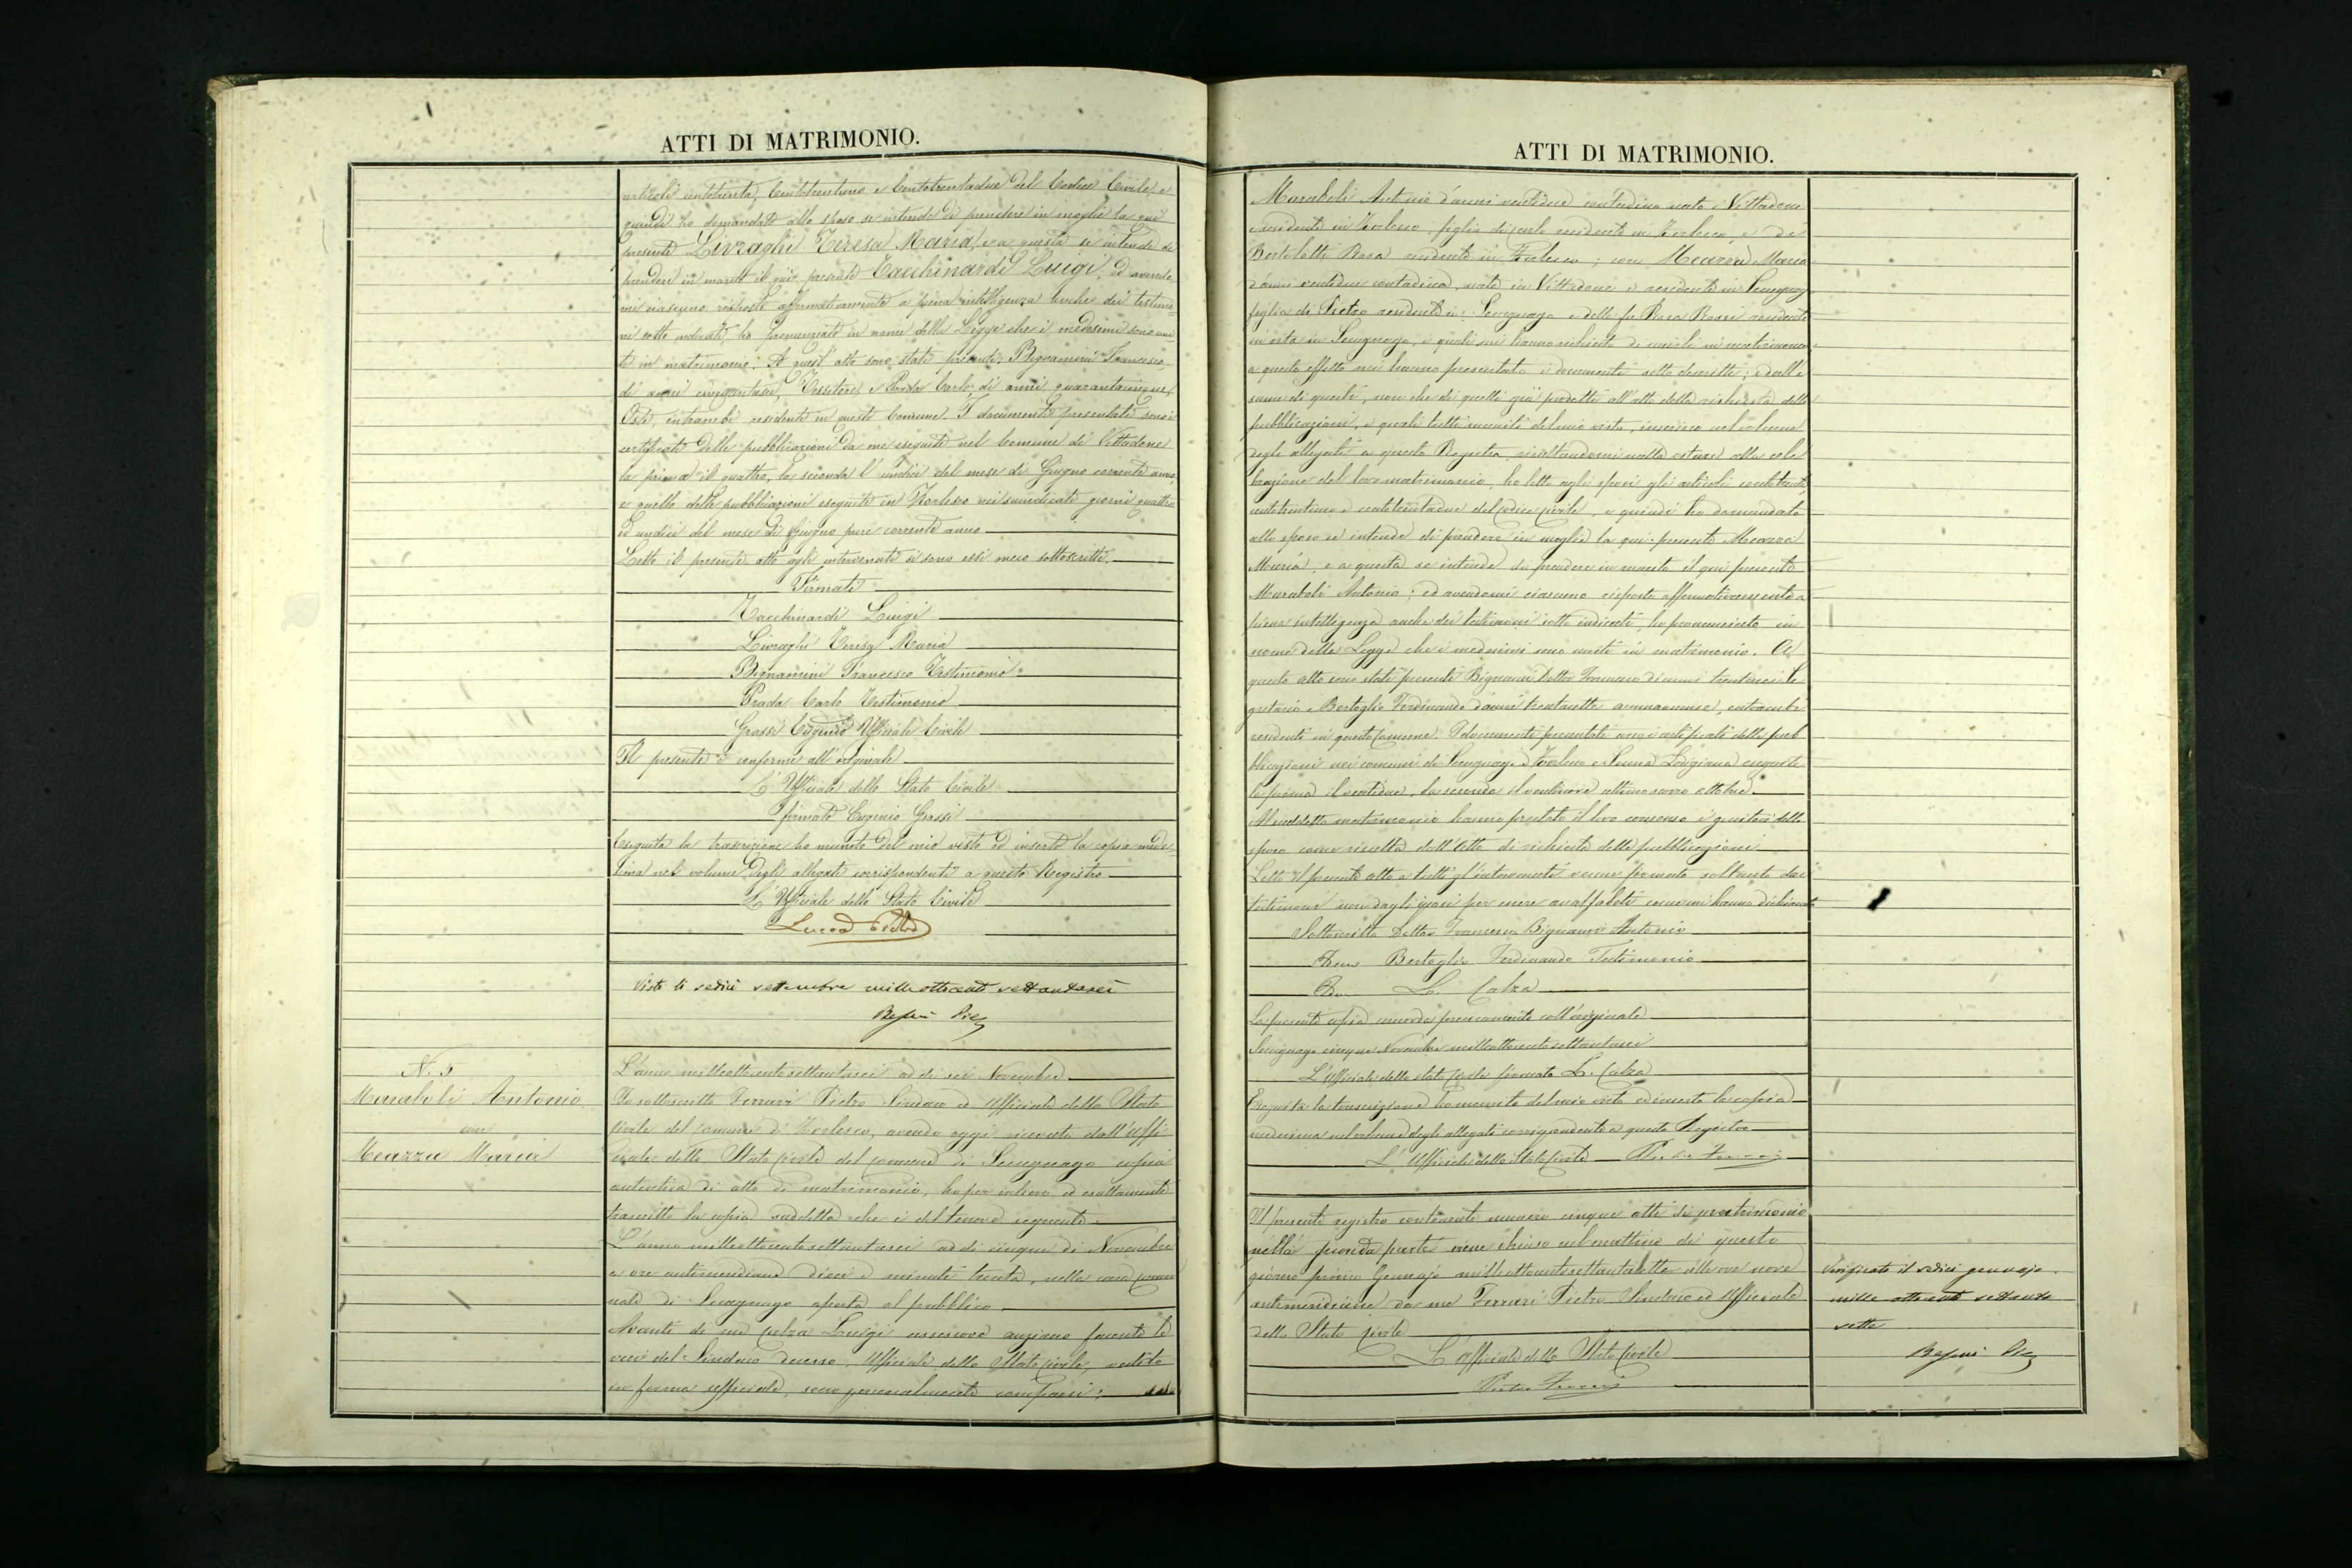 ATTI DI MATRIMONIO.
articoli centotrenta, Centotrentuno e Centotrentadue del Codice Civile, e
quindi ho domandato allo sposo se intende di prendere in moglie la qui
presente Livraghi Teresa Maria, e a questa se intende di
prendere in marito il qui presente Tacchinardi Luigi, ed avendo-
mi ciascuno risposto affermativamente a piena intelligenza anche dei testimo-
ni sotto indicati, ho pronunziato in nome della Legge che i medesimi sono uni-
ti in matrimonio. A quest'atto sono stati presenti: Bignamini Francesco
di anni cinquantasei, Tessitore, e Prada Carlo, di anni quarantacinque,
Oste, entrambi residenti in questo Comune. I documenti presentati sono i
certificati delle pubblicazioni da me eseguite nel Comune di Vittadone
la prima il quattro, la seconda l'undici del mese di Giugno corrente anno,
e quello delle pubblicazioni eseguite in Zorlesco nei suindicati giorni quattro
ed undici del mese di Giugno pure corrente anno
Letto il presente atto agli intervenuti si sono essi meco sottoscritti.
Firmati
Tacchinardi Luigi
Livraghi Teresa Maria
Bignamini Francesco Testimonio
Prada Carlo Testimonio
Grossi Eugenio Ufficiale Civile
Il presente è conforme all'originale
L'Ufficiale dello Stato Civile
firmato Eugenio Grossi
Eseguita la trascrizione ho munito del mio visto ed inserto la copia mede-
sima nel volume degli allegati corrispondenti a questo Registro
L'Ufficiale dello Stato Civile
Visto li sedici settembre mille ottocento settantasei
N. 5
Maraboli Antonio
con
Meazza Maria
L'anno milleottocentosettantasei addi sei Novembre
Io sottoscritto Ferrari Pietro Sindaco ed Ufficiale dello Stato
Civile del Comune di Zorlesco, avendo oggi ricevuto dall'Uffi
ciale dello Stato Civile del Comune di Secugnago copia
autentica di atto di matrimonio, ho per intiero ed esattamente
trascritto la copia suddetta che è del tenore seguente
L'anno milleottocentosettantasei addi cinque di Novembre
a ore antimeridiane dieci e minuti trenta, nella casa comu
nale di Secugnago aperta al pubblico
Avanti di me Calza Luigi assessore anziano facente le
veci del Sindaco decesso Ufficiale dello Stato Civile, vestito
in forma ufficiale, sono personalmente comparsi:
ATTI DI MATRIMONIO.
Maraboli Antonio d'anni ventidue contadino nato a Vittadone
residente in Zorlesco, figlio di Carlo residente in Zorlesco, e da
Bertoletti Rosa residente in Zorlesco; con Meazza Maria
d'anni ventidue contadina, nata in Vittadone e residente in Secugnago
figlia di Pietro residente in Secugnago e della fu Rosa Rossi residente
in vita in Secugnago, i quali mi hanno richiesto di unirli in matrimonio
a questo effetto mi hanno presentato i documenti sotto descritti; e dall'e
same di questi, non che di quelli già prodotti all'atto della richiesta delle
pubblicazioni, i quali tutti muniti del mio visto, inserisco nel volume
degli allegati a questo Registro, risultandomi nulla ostare alla cele
brazione del loro matrimonio, ho letto agli sposi gli articoli centotrenta,
centotrentuno e centotrentadue del Codice Civile, e quindi ho domandato
allo sposo se intende di prendere in moglie la qui presente Meazza
Maria, e a questa se intende di prendere in marito il qui presente
Maraboli Antonio; ed avendomi ciascuno risposto affermativamente a
piena intelligenza anche dei testimoni sotto indicati, ho pronunciato in
nome della Legge che i medesimi sono uniti in matrimonio. A
questo atto sono stati presenti Bignami Dottor Francesco d'anni trentasei Se
gretario e Bertoglio Ferdinando d'anni trentasette, entrambi
residenti in questo Comune. I documenti presentati sono i certificati delle pub
blicazioni nei comuni di Secugnago, Zorlesco e Senna Lodigiana eseguite
la prima il ventidue, la seconda il ventinove ottimo scorso ottobre.
Al suddetto matrimonio hanno prestato il loro consenso i genitori dello
sposo come risulta dall'atto di richiesta della pubblicazione
Letto il presente atto a tutti gl'intervenuti venne firmato soltanto dai
testimoni non dagli sposi per essere analfabeti come mi hanno dichiarato
Sottoscritto Dottor Francesco Bignami Antonio
Bertoglio Ferdinando Testimonio
L. Calza
La presente copia concorda pienamente coll'originale
Secugnago cinque Novembre milleottocentosettantasei
L'Ufficiale dello Stato Civile firmato L. Calza
Eseguita la trascrizione ho munito del mio visto ed inserto la copia
medesima nel volume degli allegati corrispondente a questo Registro
L'Ufficiale dello Stato Civile Pietro Ferrari
Il presente registro contenente numero cinque atti di matrimonio
nella seconda parte viene chiuso nel mattino di questo
giorno primo Gennajo milleottocentosettantasette alle ore nove
antimeridiane da me Ferrari Pietro Sindaco ed Ufficiale
dello Stato Civile
L'Ufficiale dello Stato Civile
Pietro Ferrari
Verificato il sedici gennajo
mille ottocento settanta
sette